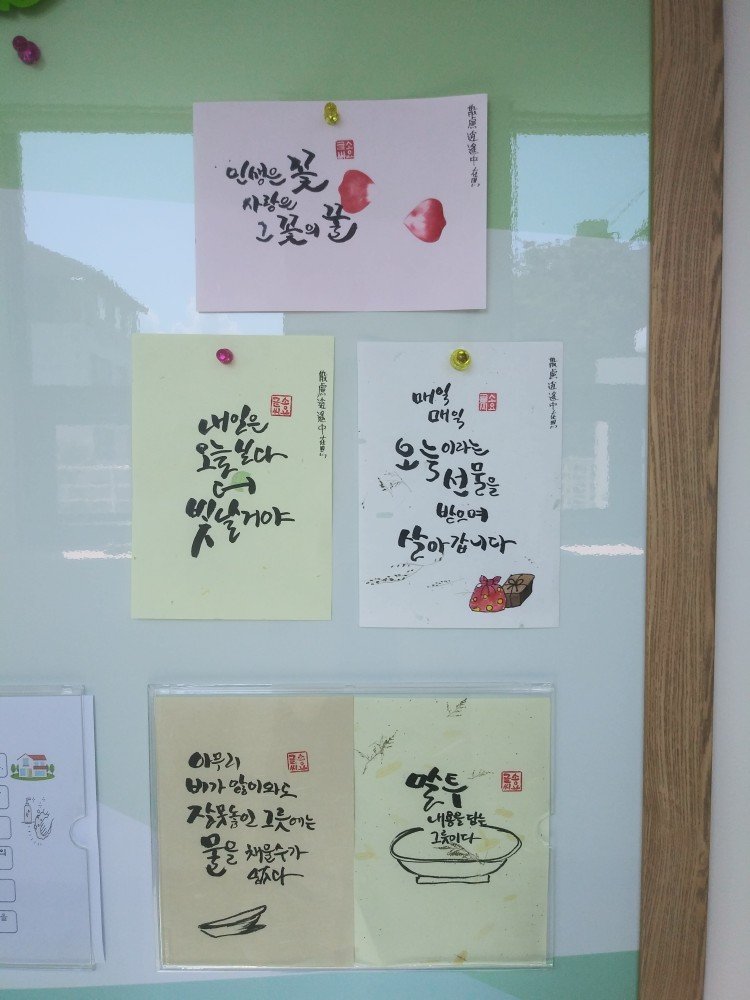 인생은 꽃
사랑은
그 꽃의 꿀
내일은
오늘보다
더
빛날거야
매일
매일
오늘이라는
선물을
받으며
살아갑니다
아무리
비가 많이와도
잘못놓인 그릇에는
물을 채울수가
없다
말투
내용을 담는
그릇이다
의
을